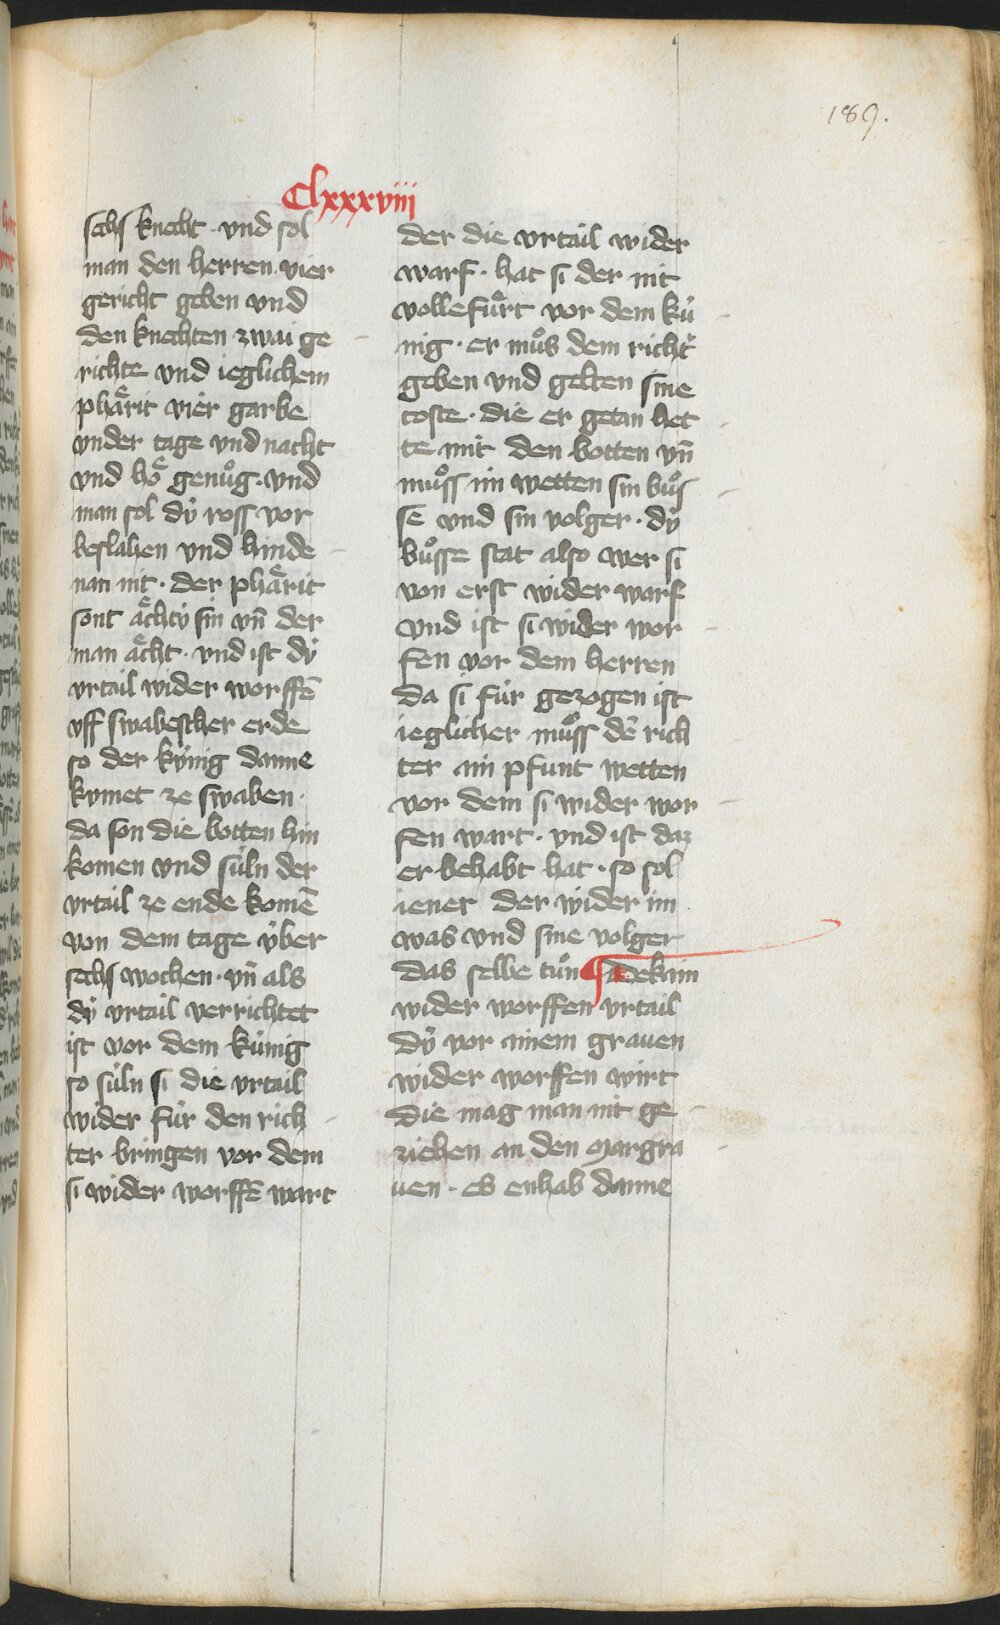 189.
Clxxxviii
sechs knecht · vnd sol
man den herren vier
gericht geben vnd
den knechten zwai ge
richte vnd ieglichem
phärit vier garbe
vnder tage vnd nacht
vnd hoͤ genuͦg · vnd
man sol dÿ ross vor
beslahen vnd hinde
nan nit · der phärit
sont ächtÿ sin vn̄ der
man ächt · vnd ist dÿ
vrtail wider worffē
vff swabescher erde
so der kÿnig danne
kvmet ze swaben ·
da son die botten hin
komen vnd süln der
vrtail ze ende komē
von dem tage ÿber
sechs wochen · vn̄ als
dÿ vrtail verrichtet
ist vor dem künig
so süln si die vrtail
wider für den rich
ter bringen vor dem
si wider worffē wart
der die vrtail wider
warf · hat si der nit
vollefuͤrt vor dem kü
nig · er muͦs dem richt̄
geben vnd gelten sine
coste · die er getan het
te mit den botten vn̄
muͦss im wetten sin buͦs
se vnd sin volger · dÿ
buͦsse stat also wer si
von erst wider warf
vnd ist si wider wor
fen vor dem herren
da si für gezogen ist
ieglicher muͦss dē rich
ter ain pfunt wetten
vor dem si wider wor
fen wart · vnd ist daz
er behabt hat · so sol
iener der wider im
was vnd sine volger
das selbe tuͦn ¶ Dekain
wider worffen vrtail
dÿ vor ainem grauen
wider worffen wirt
die mag man nit ge
ziehen an den Margra
uen · es enhab danne